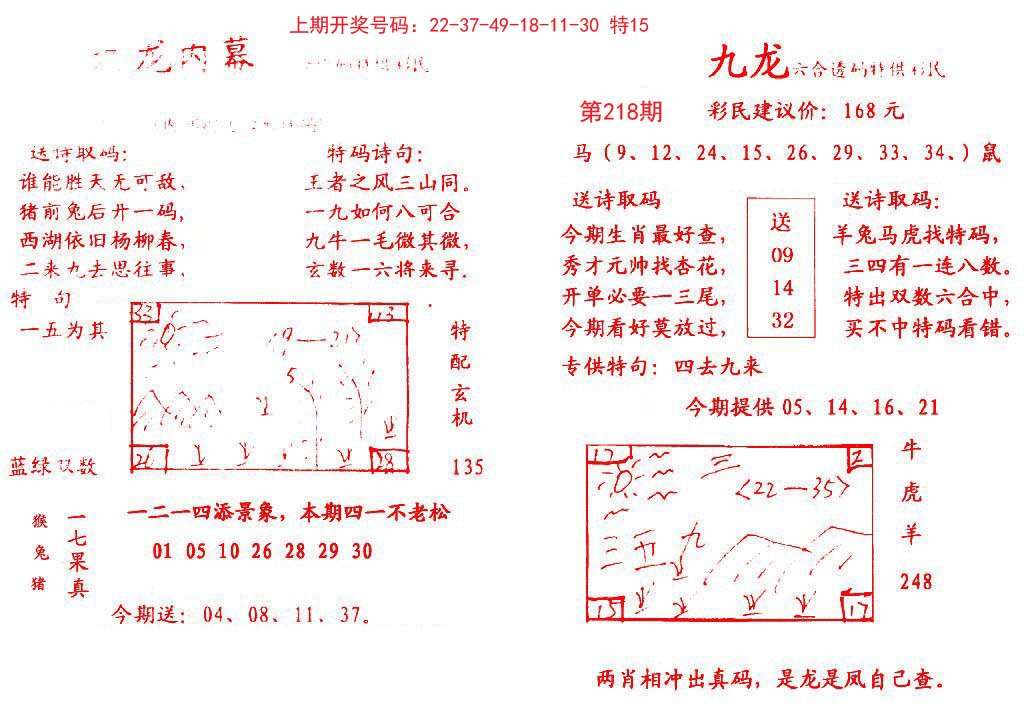 上期开奖号码：22-37-49-18-11-30 特15
龙内幕
送诗取码：
谁能胜天无可敌，
猪前兔后开一码，
西湖依旧杨柳春，
二来九去思往事，
特码诗句：
王者之风三山同。
一九如何八可合
九牛一毛微其微，
玄数一六将来寻。
特 句
一五为其
33
13
5
28
特配玄机
135
蓝绿双数
猴兔猪
一七果真
一二一四添景象，本期四一不老松
01 05 10 26 28 29 30
今期送：04、08、11、37。
九龙六合透码特供彩民
第218期
彩民建议价：168元
马（9、12、24、15、26、29、33、34、）鼠
送诗取码
今期生肖最好查，
秀才元帅找杏花，
开单必要一三尾，
今期看好莫放过，
送
09
14
32
送诗取码：
羊兔马虎找特码，
三四有一连八数。
特出双数六合中，
买不中特码看错。
专供特句：四去九来
今期提供 05、14、16、21
17
2
三
<22—35>
三五九
15
17
牛
虎
羊
248
两肖相冲出真码，是龙是凤自己查。